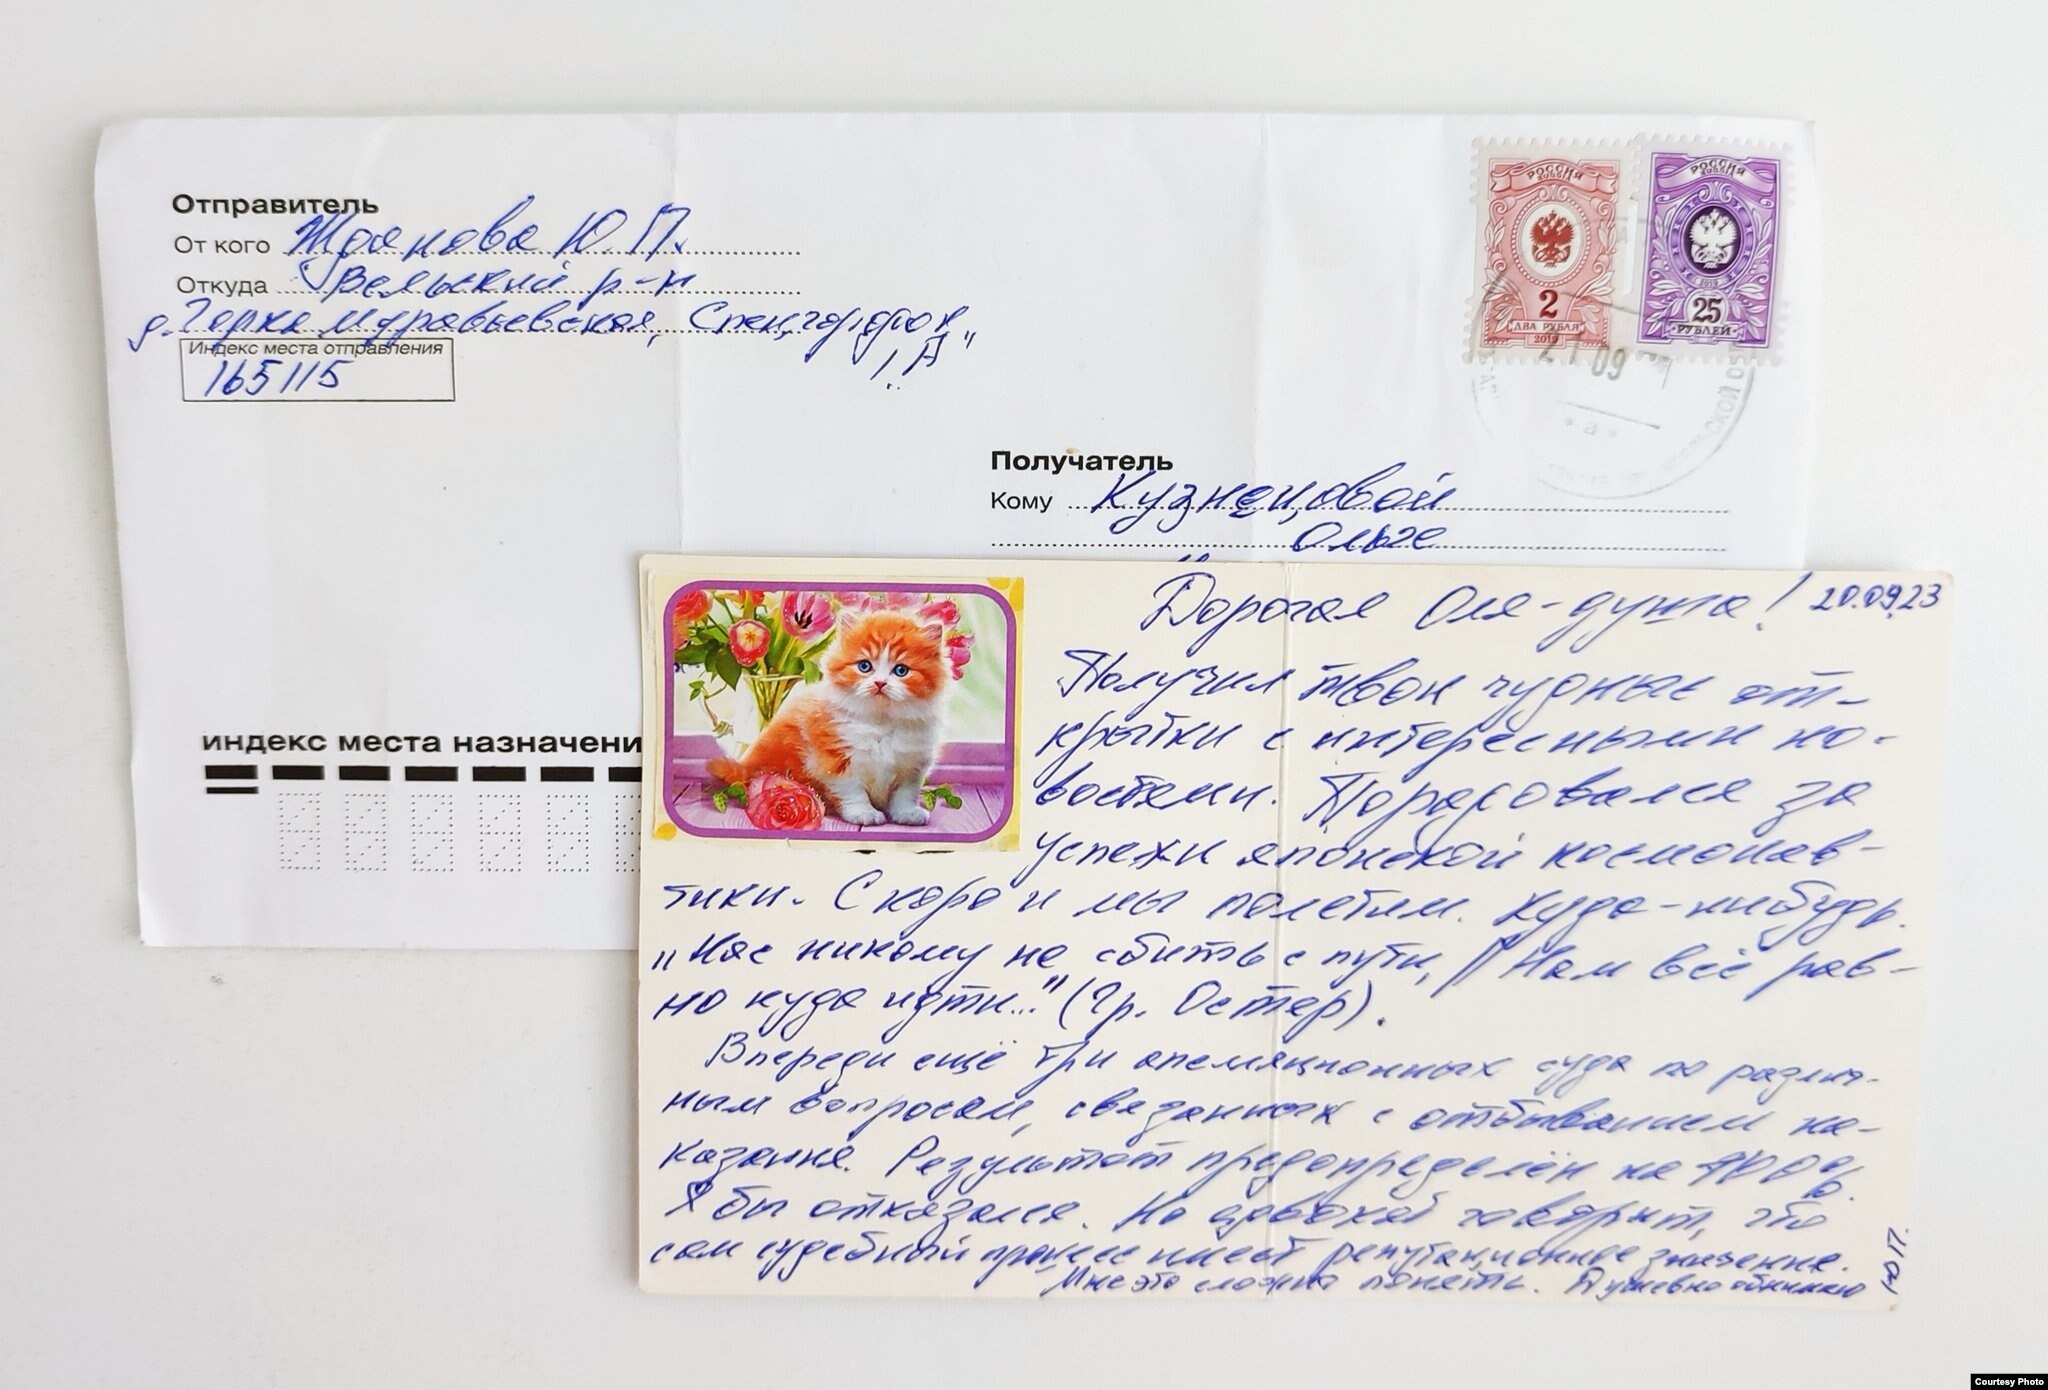 Отправитель
От кого Жданова Ю. П.
Откуда Вельский р-н
д. Горка Муравьевская, Спецгородок
"А"
Индекс места отправления
165115
РОССИЯ
ROSSIA
2
ДВА РУБЛЯ
2019
РОССИЯ
ROSSIA
2019
25
РУБЛЕЙ
09
Получатель
Кому Кузнецовой
Ольге
индекс места назначени
Дорогая Оля-душа! 20.09.23
Получил твои чудные от-
крытки с интересными но-
востями. Порадовался за
успехи японской космонав-
тики. Скоро и мы полетим. Куда-нибудь.
"Нас никому не сбить с пути, // Нам всё рав-
но куда идти..." (Гр. Остер).
Впереди ещё три апелляционных суда по различ-
ным вопросам, связанных с отбыванием на-
казания. Результат предопределён на 100%.
Я бы отказался. Но адвокат говорит, что
сам судебный процесс имеет репутационное значение.
Мне это сложно понять. Душевно обнимаю
Ю.П.
Courtesy Photo